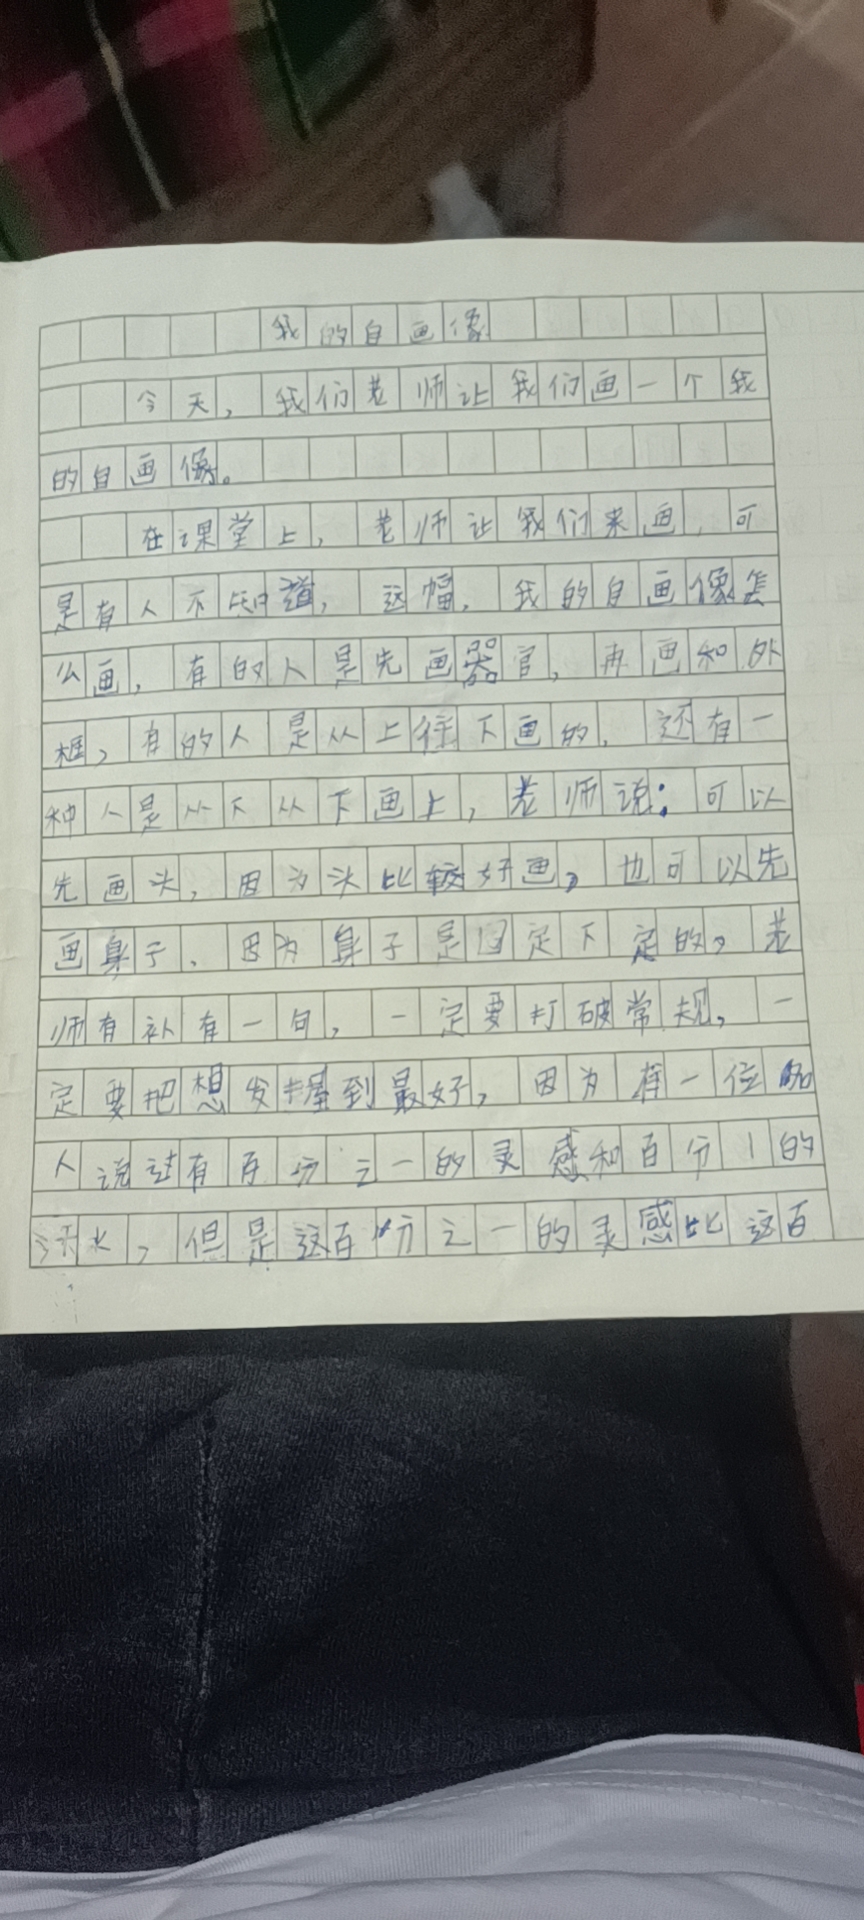 我的自画像
今天，我们老师让我们画一个我
的自画像。
在课堂上，老师让我们来画，可
是有人不知道，这幅，我的自画像怎
么画，有的人是先画器官，再画和外
框，有的人是从上往下画的，还有一
种人是从下从下画上，老师说：可以
先画头，因为头比较好画，也可以先
画身子，因为身子是固定下定的，老
师有补有一句，一定要打破常规，一
定要把想发挥到最好，因为有一位
人说过有百分之一的灵感和百分1的
水，但是这百分之一的灵感比这百